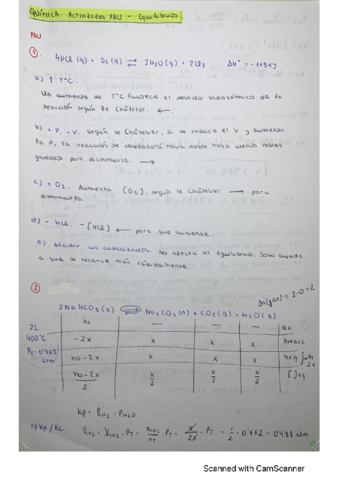 QUÍMICA - Actividades PAU - Equilibrios
PAU
①. 4HCl (g) + O2 (g) ⇌ 2H2O (g) + 2Cl2 ΔH° = -115 kJ
a) ↑ Tª C.
Un aumento de Tª C favorece el sentido endotérmico de la
reacción según Le Châtelier. ←.
b) + P, - V. Según Le Châtelier, si se reduce el V y aumenta
la P, la reacción se desplazará hacia donde haya menos moles
gaseosos para disminuirla. →
c) + O2. Aumenta [O2], según Le Châtelier → para
disminuirla.
d) - HCl. - [HCl] ← para que aumente.
e) Añadir un catalizador. No afecta al equilibrio. Solo ayuda
a que se alcance más rápidamente.
②
Δn(gas) = 2-0 = 2
2NaHCO3 (s) ⇌ Na2CO3 (s) + CO2 (g) + H2O (g)
2L no — — — no
400°C -2x x x x nreacc
PT = 0'962 no-2x x x x neq
atm no-2x/2 x/2 x/2 x/2 [ ]eq
2x
Kp = PCO2 · PH2O
a) Kp / Kc. PCO2 = XCO2 · PT = nCO2/nT · PT = x/2x · PT = 1/2 · 0'962 = 0'481 atm
Scanned with CamScanner